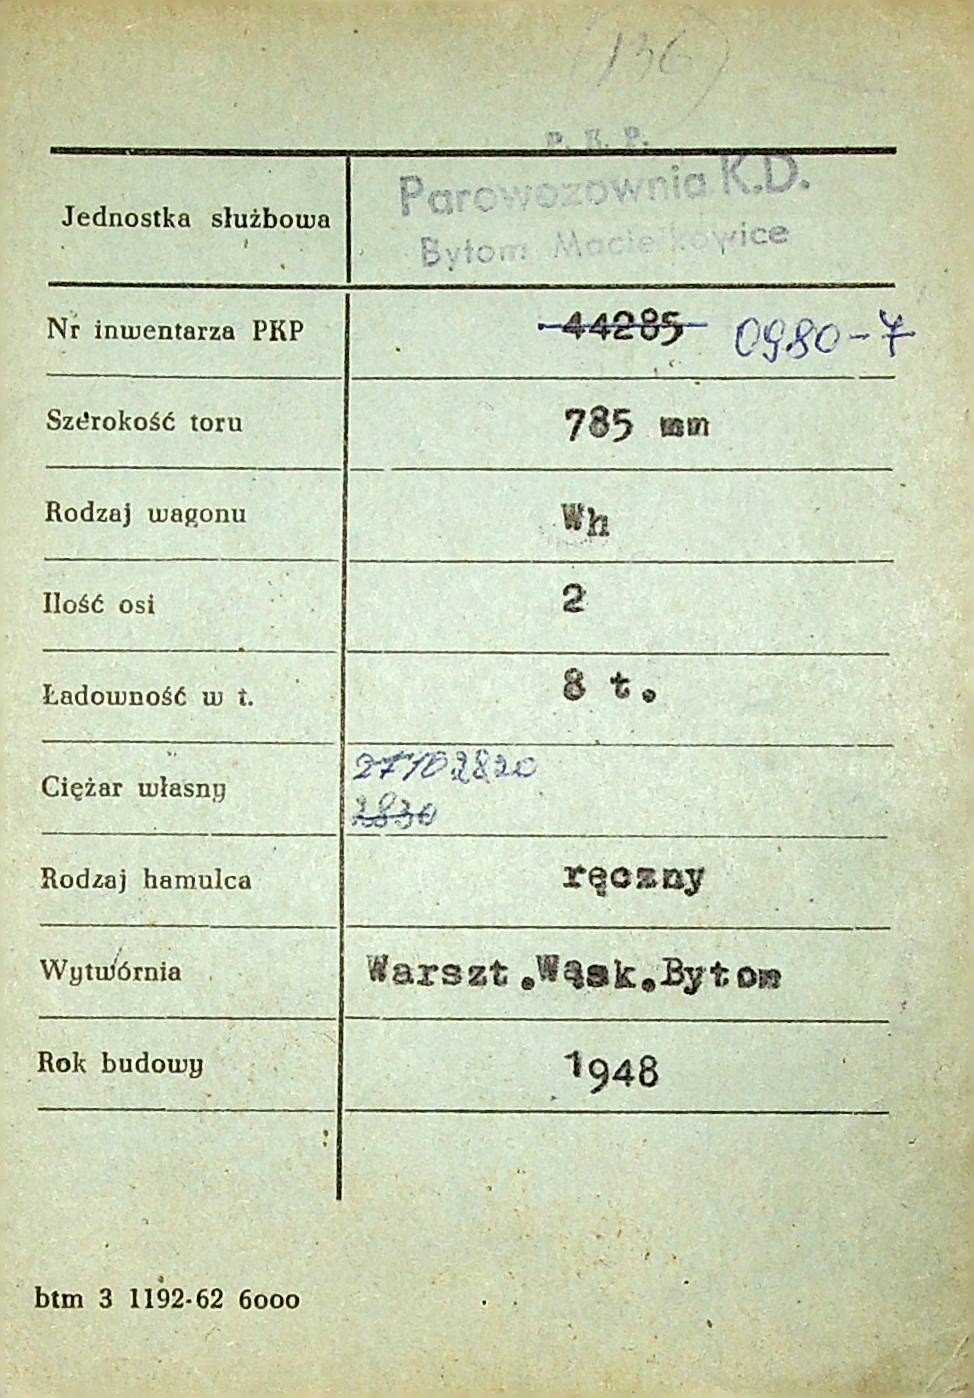 (136)
P. K. P.
Parowozownia K.D.
Jednostka służbowa
Bytom Maciejkowice
Nr inwentarza PKP 44285 0980-7
Szerokość toru 785 mm
Rodzaj wagonu Wh
Ilość osi 2
Ładowność w t. 8 t.
2710 2820
Ciężar własny
2830
Rodzaj hamulca ręczny
Wytwórnia Warszt.Wąsk.Bytom
Rok budowy 1948
btm 3 1192-62 6000